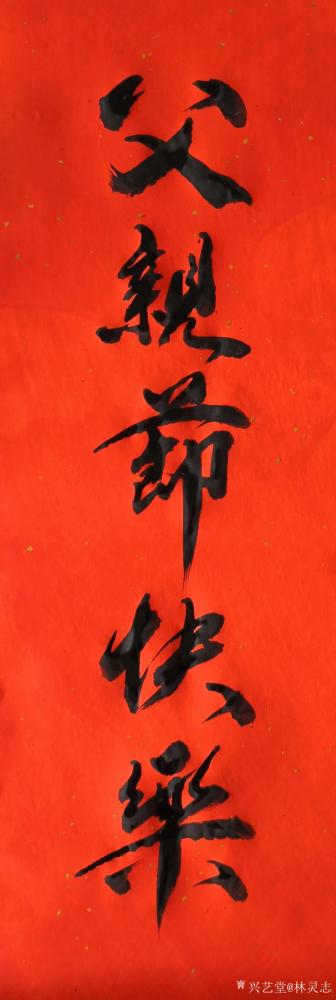 父親節快樂
兴艺堂@林灵志